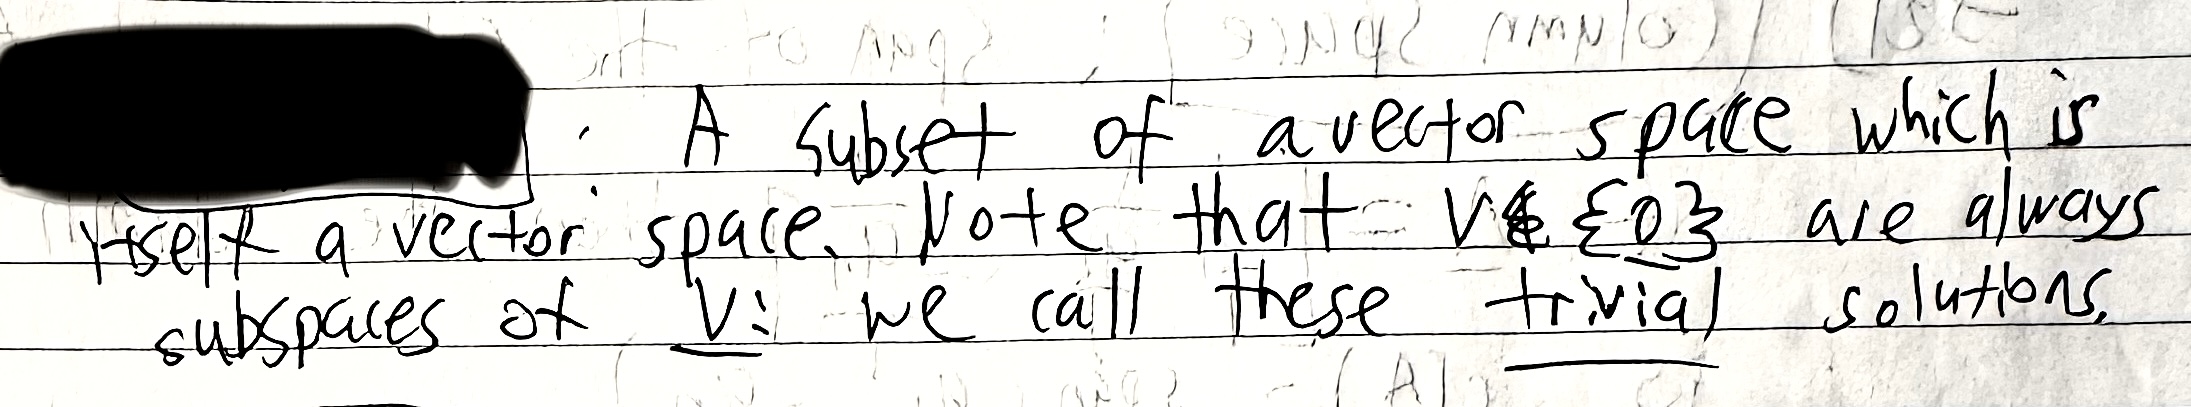 : A subset of a vector space which is
itself a vector space. Note that V & {0} are always
subspaces of V: we call these trivial solutions.